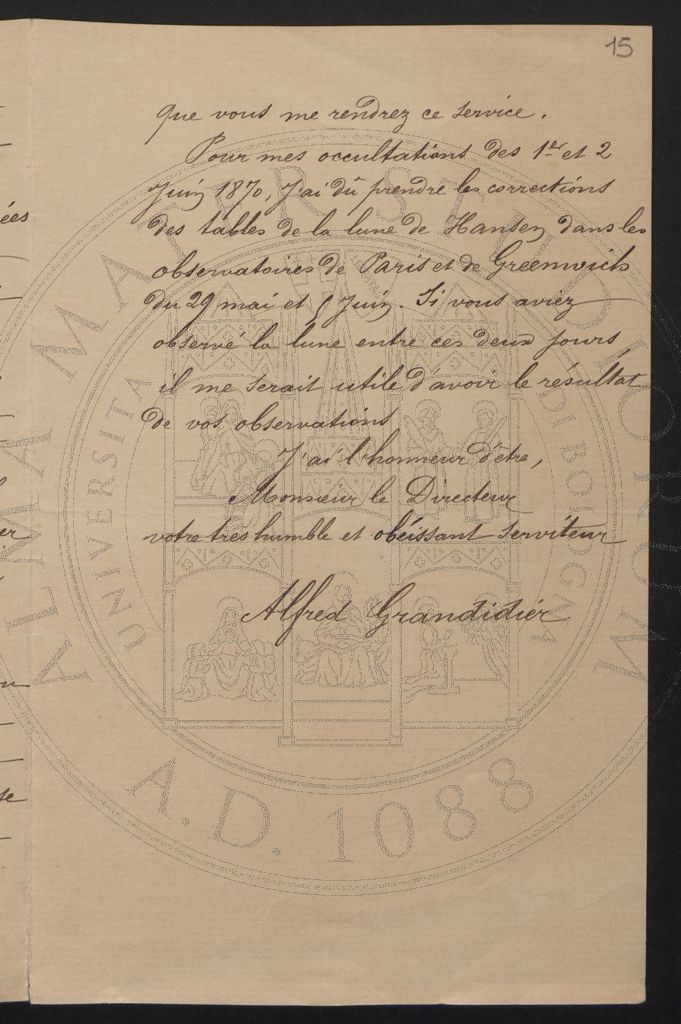 15
que vous me rendrez ce service.
Pour mes occultations des 1er et 2
Juin 1870, J'ai dû prendre les corrections
des tables de la lune de Hansen dans les
observatoires de Paris et de Greenwich
du 29 mai et 5 Juin. Si vous aviez
observé la lune entre ces deux jours,
il me serait utile d'avoir le résultat
de vos observations
J'ai l'honneur d'être,
Monsieur le Directeur
votre très humble et obéissant serviteur
Alfred Grandidier
ées
er
se
ALMA MATER STUDIORUM
UNIVERSITA DI BOLOGNA
A.D. 1088